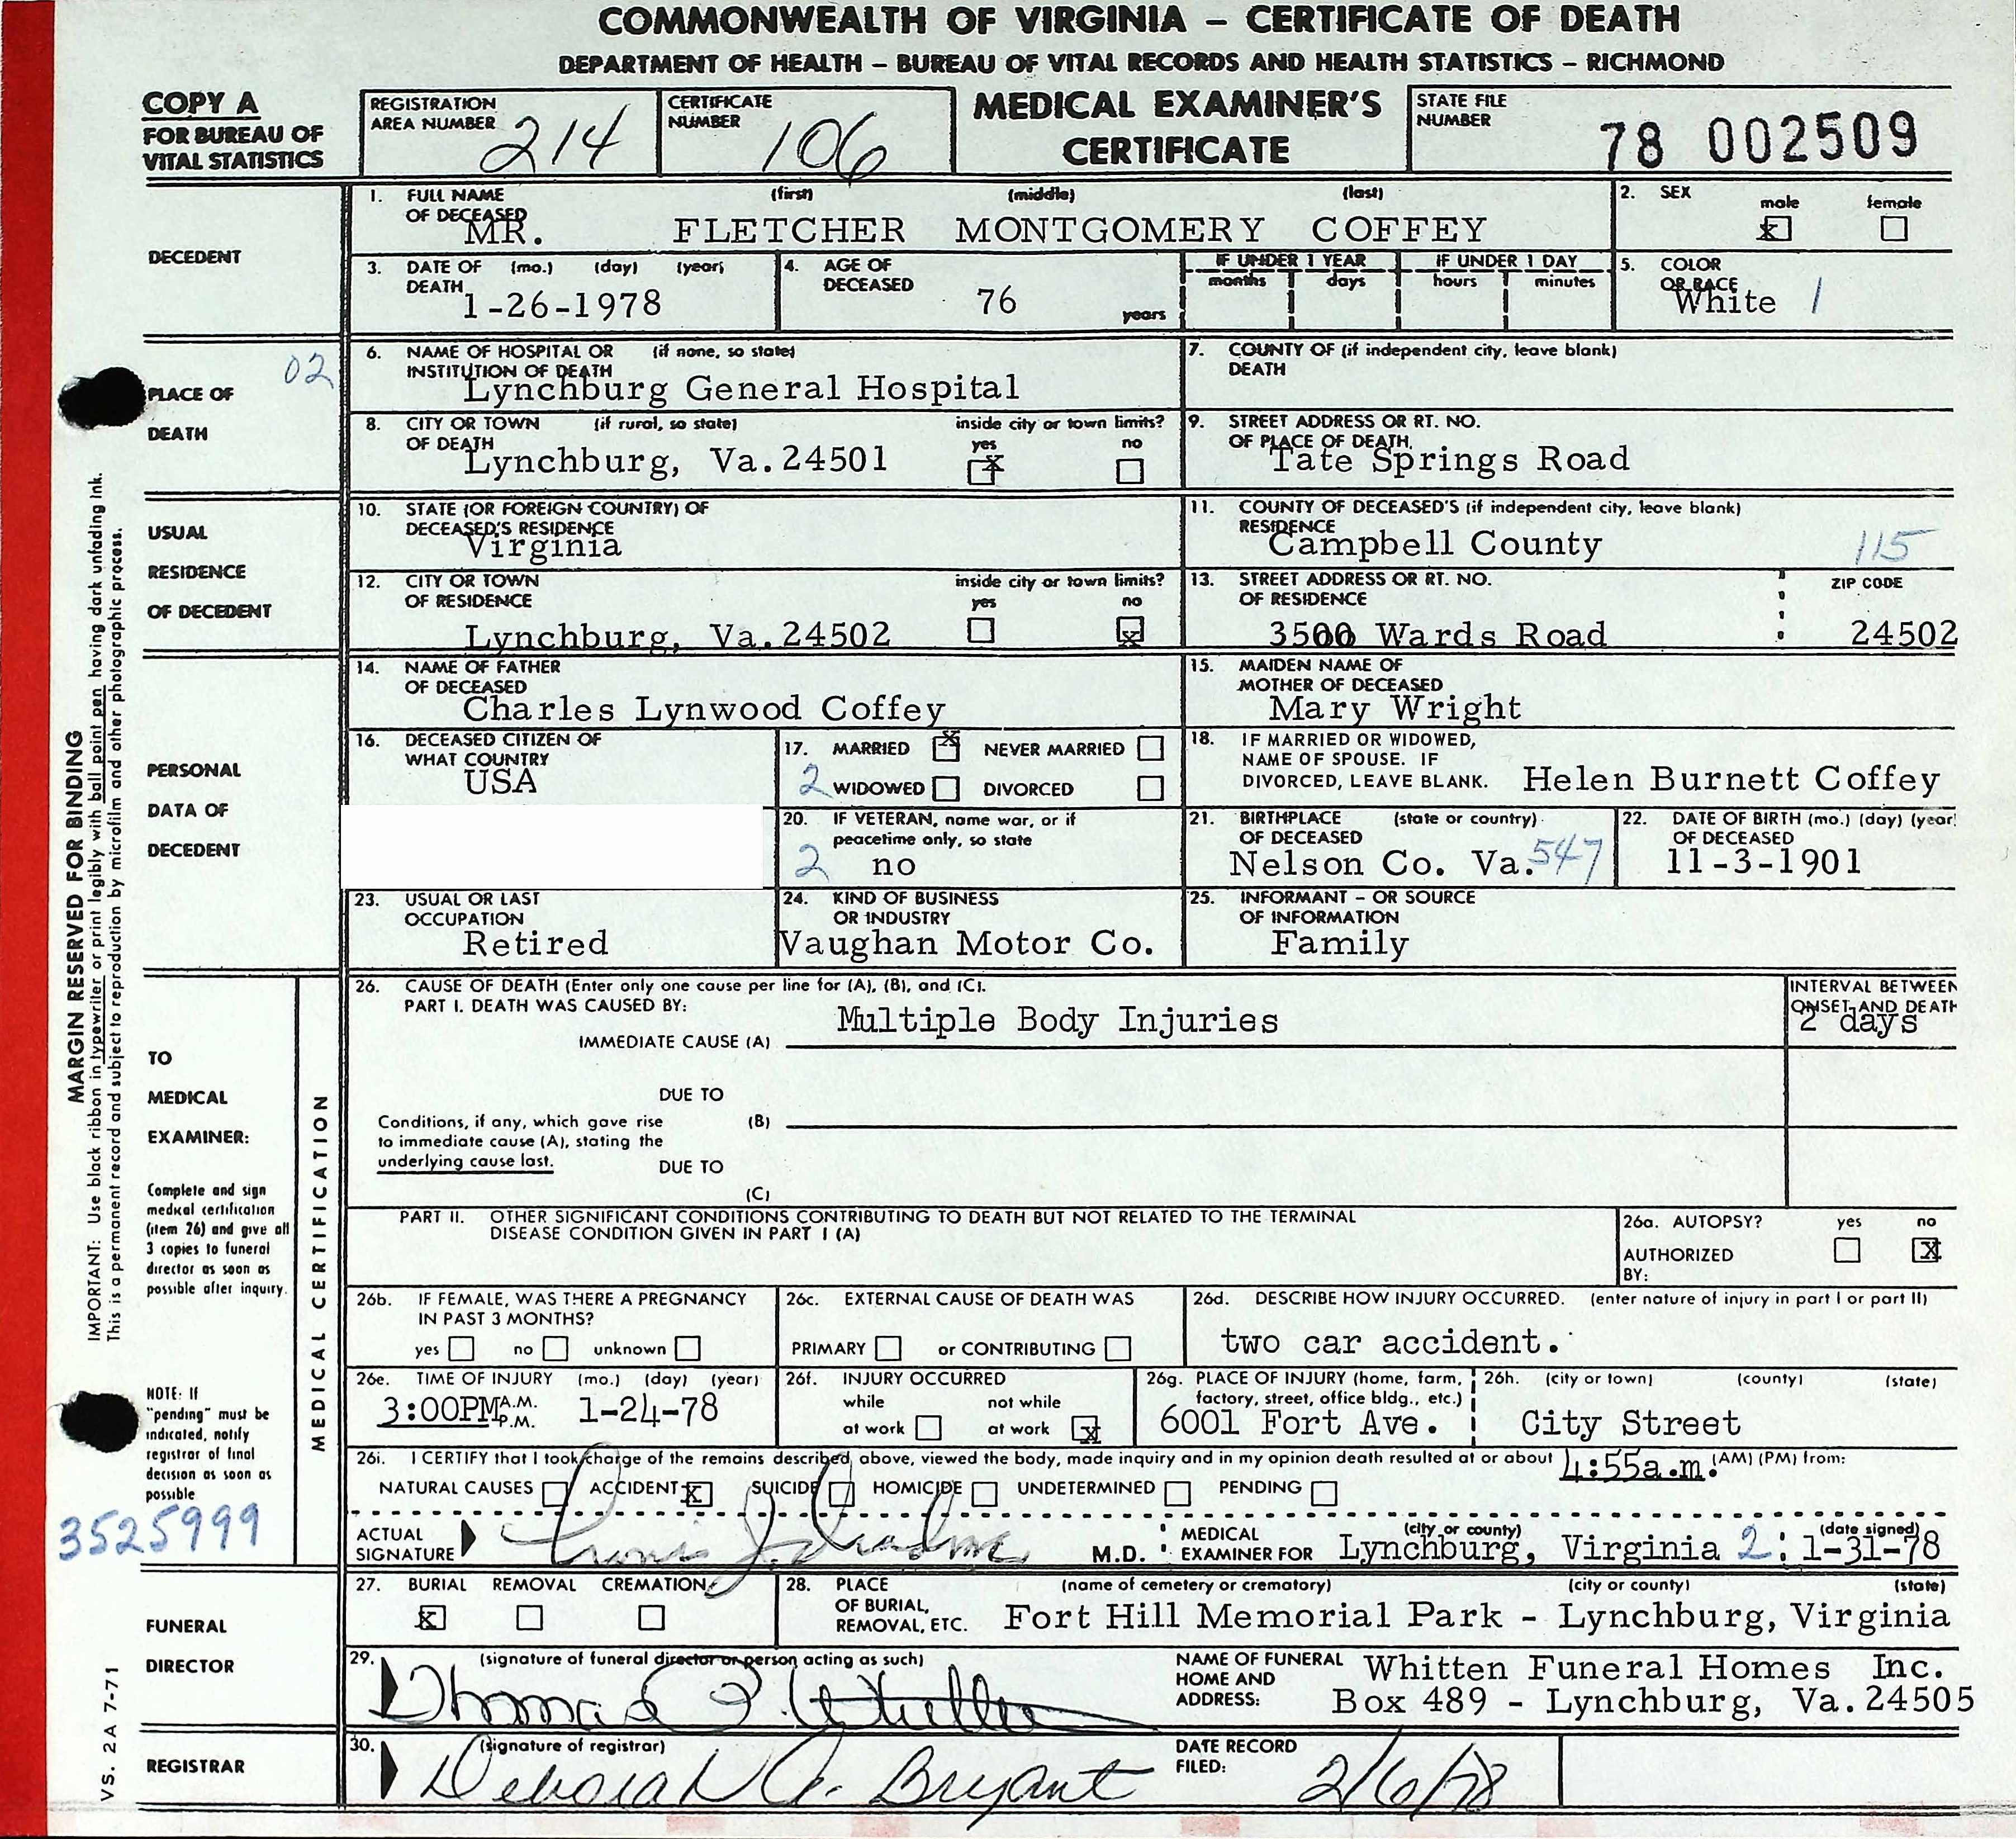 COMMONWEALTH OF VIRGINIA – CERTIFICATE OF DEATH
DEPARTMENT OF HEALTH – BUREAU OF VITAL RECORDS AND HEALTH STATISTICS – RICHMOND
COPY A
FOR BUREAU OF
VITAL STATISTICS
REGISTRATION
AREA NUMBER 214
CERTIFICATE
NUMBER 106
MEDICAL EXAMINER'S
CERTIFICATE
STATE FILE
NUMBER 78 002509
DECEDENT
1. FULL NAME (first) (middle) (last)
OF DECEASED
MR. FLETCHER MONTGOMERY COFFEY
2. SEX male female
x
3. DATE OF (mo.) (day) (year)
DEATH
1-26-1978
4. AGE OF
DECEASED
76 years
IF UNDER 1 YEAR IF UNDER 1 DAY
months days hours minutes
5. COLOR
OR RACE
White 1
PLACE OF
DEATH
02
6. NAME OF HOSPITAL OR (if none, so state)
INSTITUTION OF DEATH
Lynchburg General Hospital
7. COUNTY OF (if independent city, leave blank)
DEATH
8. CITY OR TOWN (if rural, so state) inside city or town limits?
OF DEATH yes no
Lynchburg, Va. 24501 x
9. STREET ADDRESS OR RT. NO.
OF PLACE OF DEATH
Tate Springs Road
USUAL
RESIDENCE
OF DECEDENT
10. STATE (OR FOREIGN COUNTRY) OF
DECEASED'S RESIDENCE
Virginia
11. COUNTY OF DECEASED'S (if independent city, leave blank)
RESIDENCE
Campbell County 115
12. CITY OR TOWN inside city or town limits?
OF RESIDENCE yes no
Lynchburg, Va. 24502 x
13. STREET ADDRESS OR RT. NO. ZIP CODE
OF RESIDENCE
3500 Wards Road 24502
PERSONAL
DATA OF
DECEDENT
14. NAME OF FATHER
OF DECEASED
Charles Lynwood Coffey
15. MAIDEN NAME OF
MOTHER OF DECEASED
Mary Wright
16. DECEASED CITIZEN OF
WHAT COUNTRY
USA
17. MARRIED x NEVER MARRIED
2 WIDOWED DIVORCED
18. IF MARRIED OR WIDOWED,
NAME OF SPOUSE. IF
DIVORCED, LEAVE BLANK. Helen Burnett Coffey
20. IF VETERAN, name war, or if
peacetime only, so state
2 no
21. BIRTHPLACE (state or country)
OF DECEASED
Nelson Co. Va. 547
22. DATE OF BIRTH (mo.) (day) (year)
OF DECEASED
11-3-1901
23. USUAL OR LAST
OCCUPATION
Retired
24. KIND OF BUSINESS
OR INDUSTRY
Vaughan Motor Co.
25. INFORMANT – OR SOURCE
OF INFORMATION
Family
MARGIN RESERVED FOR BINDING
IMPORTANT: Use black ribbon in typewriter or print legibly with ball point pen having dark unfading ink.
This is a permanent record and subject to reproduction by microfilm and other photographic process.
TO
MEDICAL
EXAMINER:
Complete and sign
medical certification
(item 26) and give all
3 copies to funeral
director as soon as
possible after inquiry.
NOTE: If
"pending" must be
indicated, notify
registrar of final
decision as soon as
possible
3525999
MEDICAL CERTIFICATION
26. CAUSE OF DEATH (Enter only one cause per line for (A), (B), and (C).
PART I. DEATH WAS CAUSED BY:
IMMEDIATE CAUSE (A) Multiple Body Injuries
INTERVAL BETWEEN
ONSET AND DEATH
2 days
DUE TO
Conditions, if any, which gave rise (B)
to immediate cause (A), stating the
underlying cause last. DUE TO
(C)
PART II. OTHER SIGNIFICANT CONDITIONS CONTRIBUTING TO DEATH BUT NOT RELATED TO THE TERMINAL
DISEASE CONDITION GIVEN IN PART I (A)
26a. AUTOPSY? yes no
AUTHORIZED X
BY:
26b. IF FEMALE, WAS THERE A PREGNANCY
IN PAST 3 MONTHS?
yes no unknown
26c. EXTERNAL CAUSE OF DEATH WAS
PRIMARY or CONTRIBUTING
26d. DESCRIBE HOW INJURY OCCURRED. (enter nature of injury in part I or part II)
two car accident.
26e. TIME OF INJURY (mo.) (day) (year)
3:00PM A.M. P.M. 1-24-78
26f. INJURY OCCURRED
while not while
at work at work x
26g. PLACE OF INJURY (home, farm,
factory, street, office bldg., etc.)
6001 Fort Ave.
26h. (city or town) (county) (state)
City Street
26i. I CERTIFY that I took charge of the remains described above, viewed the body, made inquiry and in my opinion death resulted at or about 4:55a.m. (AM) (PM) from:
NATURAL CAUSES ACCIDENT X SUICIDE HOMICIDE UNDETERMINED PENDING
ACTUAL
SIGNATURE M.D.
MEDICAL (city or county) (date signed)
EXAMINER FOR Lynchburg, Virginia 2 1-31-78
FUNERAL
DIRECTOR
27. BURIAL REMOVAL CREMATION
x
28. PLACE (name of cemetery or crematory) (city or county) (state)
OF BURIAL,
REMOVAL, ETC. Fort Hill Memorial Park - Lynchburg, Virginia
29. (signature of funeral director or person acting as such)
Thomas P. Whitten
NAME OF FUNERAL
HOME AND
ADDRESS:
Whitten Funeral Homes Inc.
Box 489 - Lynchburg, Va. 24505
REGISTRAR
30. (signature of registrar)
Deborah A. Bryant
DATE RECORD
FILED: 2/6/78
VS. 2A 7-71